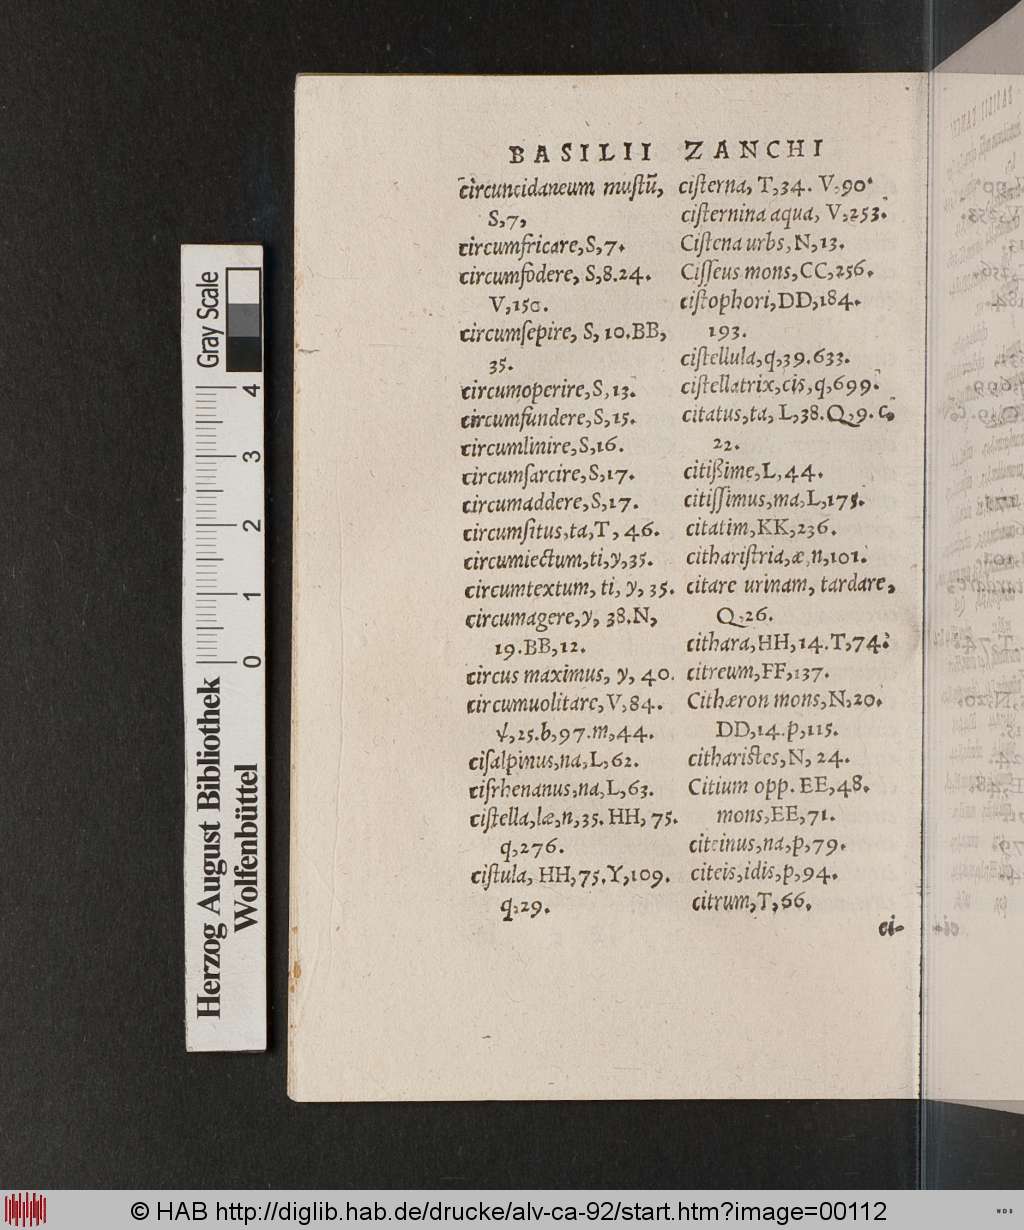 BASILII ZANCHI
circuncidaneum mustũ,
S,7,
circumfricare, S,7.
circumfodere, S,8.24.
V,150.
circumsepire, S, 10.BB,
35.
circumoperire, S, 13.
circumfundere, S, 15.
circumlinire, S, 16.
circumsarcire, S, 17.
circumaddere, S, 17.
circumsitus, ta, T, 46.
circumiectum, ti, y, 35.
circumtextum, ti, y, 35.
circumagere, y, 38.N,
19.BB, 12.
circus maximus, y, 40.
circumuolitare, V, 84.
ỳ, 25. b, 97. m, 44.
cisalpinus, na, L, 62.
cisrhenanus, na, L, 63.
cistella, læ, n, 35. HH, 75.
q, 276.
cistula, HH, 75. Y, 109.
q, 29.
cisterna, T, 34. V, 90.
cisternina aqua, V, 253.
Cistena urbs, N, 13.
Cisseus mons, CC, 256.
cistophori, DD, 184.
193.
cistellula, q, 39. 633.
cistellatrix, cis, q, 699.
citatus, ta, L, 38. Q, 9. C,
22.
citißime, L, 44.
citissimus, ma, L, 175.
citatim, KK, 236.
citharistria, æ, n, 101.
citare urinam, tardare,
Q, 26.
cithara, HH, 14. T, 74.
citreum, FF, 137.
Cithæron mons, N, 20.
DD, 14. p, 115.
citharistes, N, 24.
Citium opp. EE, 48.
mons, EE, 71.
citeinus, na, p, 79.
citeis, idis, p, 94.
citrum, T, 56.
ci-
Gray Scale
4 3 2 1 0
Herzog August Bibliothek
Wolfenbüttel
© HAB http://diglib.hab.de/drucke/alv-ca-92/start.htm?image=00112
WDB